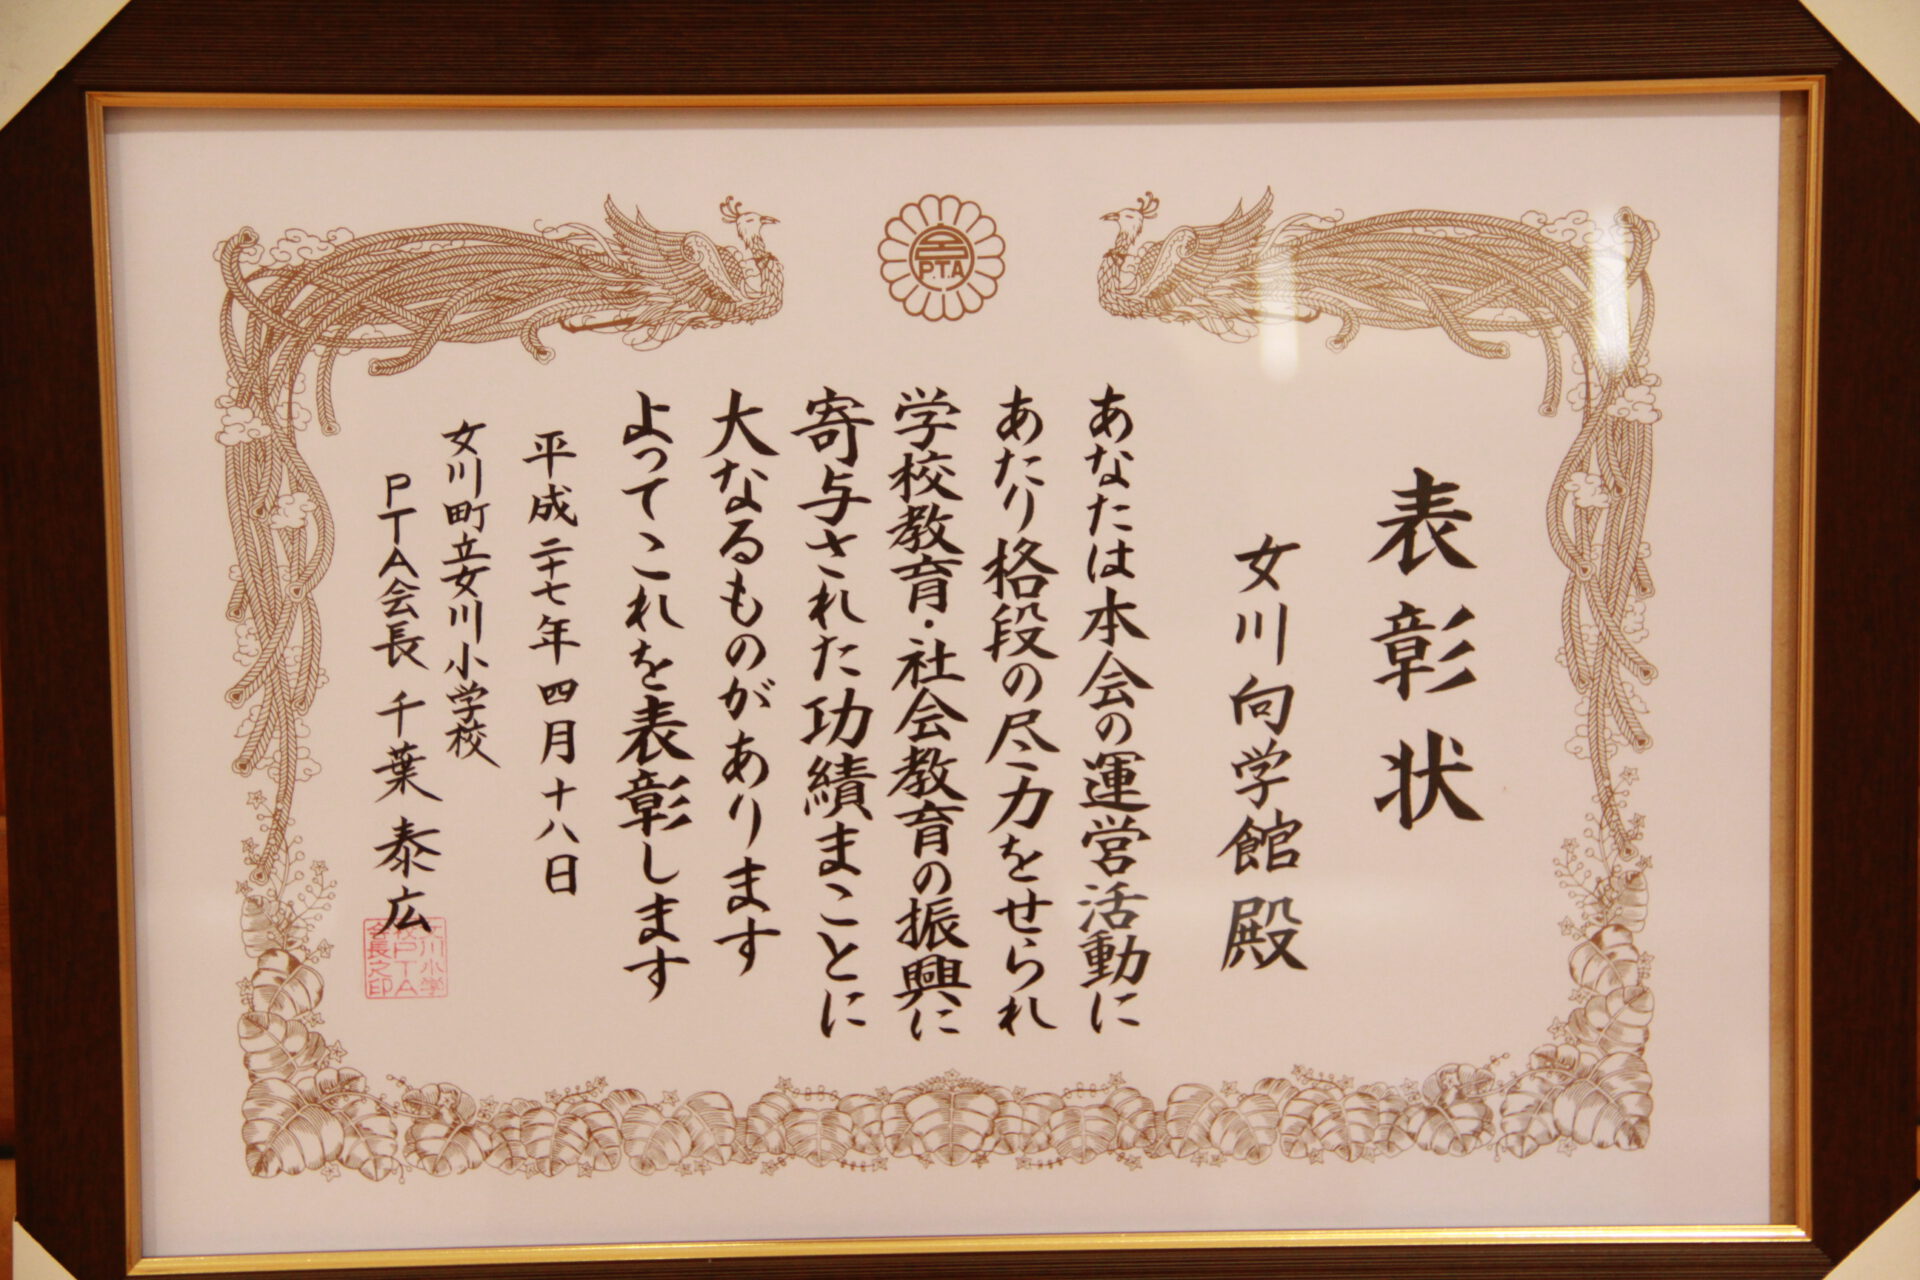 P.T.A
表彰状
女川向学館殿
あなたは本会の運営活動に
あたり格段の尽力をせられ
学校教育・社会教育の振興に
寄与された功績まことに
大なるものがあります
よってこれを表彰します
平成二十七年四月十八日
女川町立女川小学校
PTA会長 千葉泰広
女川小学
校PTA
会長之印